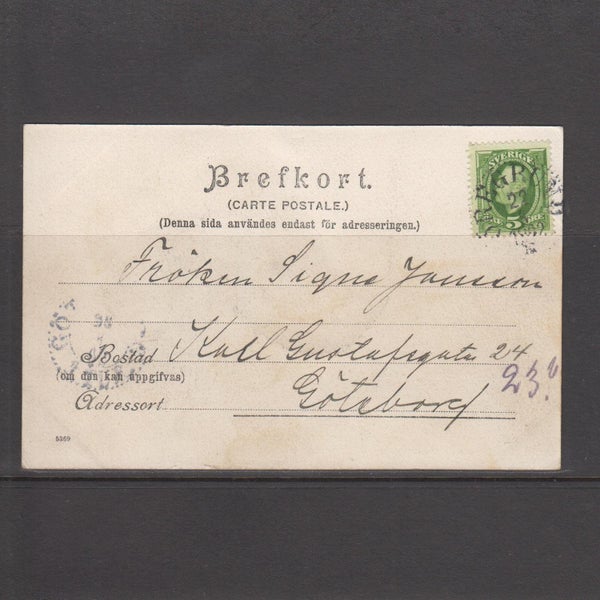 Brefkort.
(CARTE POSTALE.)
(Denna sida användes endast för adresseringen.)
SVERIGE
5 ÖRE
Fröken Signe Jansson
Bostad Karl Gustafsgata 24
(om den kan uppgifvas)
23.
Adressort Göteborg
5369